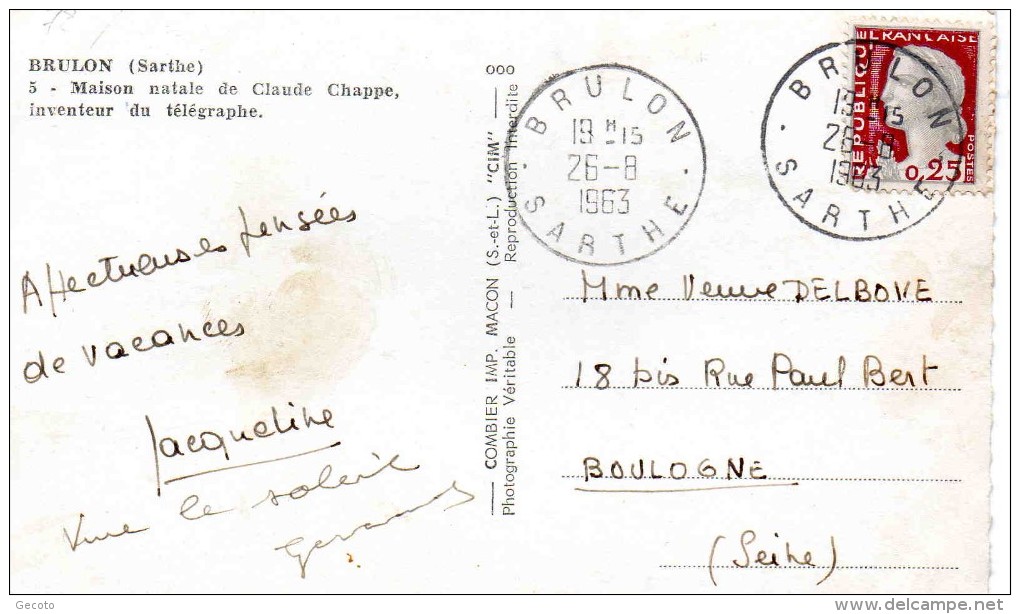 BRULON (Sarthe)
5 - Maison natale de Claude Chappe,
inventeur du télégraphe.
Affectueuses pensées
de vacances
Jacqueline
Vive le soleil
ooo
COMBIER IMP. MACON (S.-et-L.) "CIM"
Photographie Véritable — Reproduction Interdite
BRULON
19 H 15
26-8
1963
SARTHE
REPUBLIQUE FRANCAISE
0,25
POSTES
BRULON
19 H 15
26-8
1963
SARTHE
Mme Veuve DELBOVE
18 bis Rue Paul Bert
BOULOGNE
(Seine)
Gecoto
delcampe.net